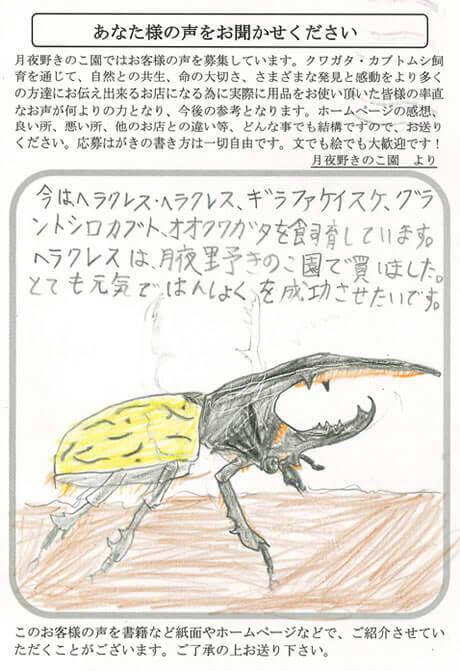 あなた様の声をお聞かせください
月夜野きのこ園ではお客様の声を募集しています。クワガタ・カブトムシ飼
育を通じて、自然との共生、命の大切さ、さまざまな発見と感動をより多く
の方達にお伝え出来るお店になる為に実際に用品をお使い頂いた皆様の率直
なお声が何よりの力となり、今後の参考となります。ホームページの感想、
良い所、悪い所、他のお店との違い等、どんな事でも結構ですので、お送り
ください。応募はがきの書き方は一切自由です。文でも絵でも大歓迎です！
月夜野きのこ園　より
今はヘラクレス・ヘラクレス、ギラファケイスケ、グラ
ントシロカブト、オオクワガタを飼育しています。
ヘラクレスは、月夜野きのこ園で買いました。
とても元気ではんしょくを成功させたいです。
このお客様の声を書籍など紙面やホームページなどで、ご紹介させてい
ただくことがございます。ご了承の上お送り下さい。